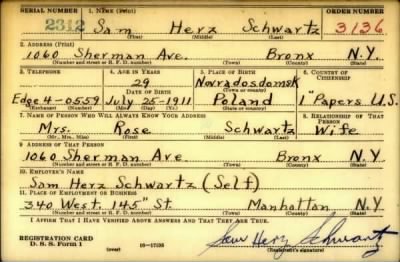 SERIAL NUMBER 1. NAME (Print) ORDER NUMBER
2312 Sam Herz Schwartz 3136
(First) (Middle) (Last)
2. ADDRESS (Print)
1060 Sherman Ave. Bronx N.Y.
(Number and street or R. F. D. number) (Town) (County) (State)
3. TELEPHONE 4. AGE IN YEARS 5. PLACE OF BIRTH 6. COUNTRY OF CITIZENSHIP
29 Novradosdomsk
(Town or county)
DATE OF BIRTH
Edge 4-0559 July 25-1911 Poland 1" Papers U.S.
(Exchange) (Number) (Mo.) (Day) (Yr.) (State or country)
7. NAME OF PERSON WHO WILL ALWAYS KNOW YOUR ADDRESS 8. RELATIONSHIP OF THAT PERSON
Mrs. Rose Schwartz Wife
(Mr., Mrs., Miss) (First) (Middle) (Last)
9. ADDRESS OF THAT PERSON
1060 Sherman Ave Bronx N.Y
(Number and street or R. F. D. number) (Town) (County) (State)
10. EMPLOYER'S NAME
Sam Herz Schwartz (Self)
11. PLACE OF EMPLOYMENT OR BUSINESS
340 West. 145" St. Manhattan N.Y
(Number and street or R. F. D. number) (Town) (County) (State)
I AFFIRM THAT I HAVE VERIFIED ABOVE ANSWERS AND THAT THEY ARE TRUE.
REGISTRATION CARD
D. S. S. Form 1 (over) 16-17105 Sam Herz Schwartz
(Registrant's signature)